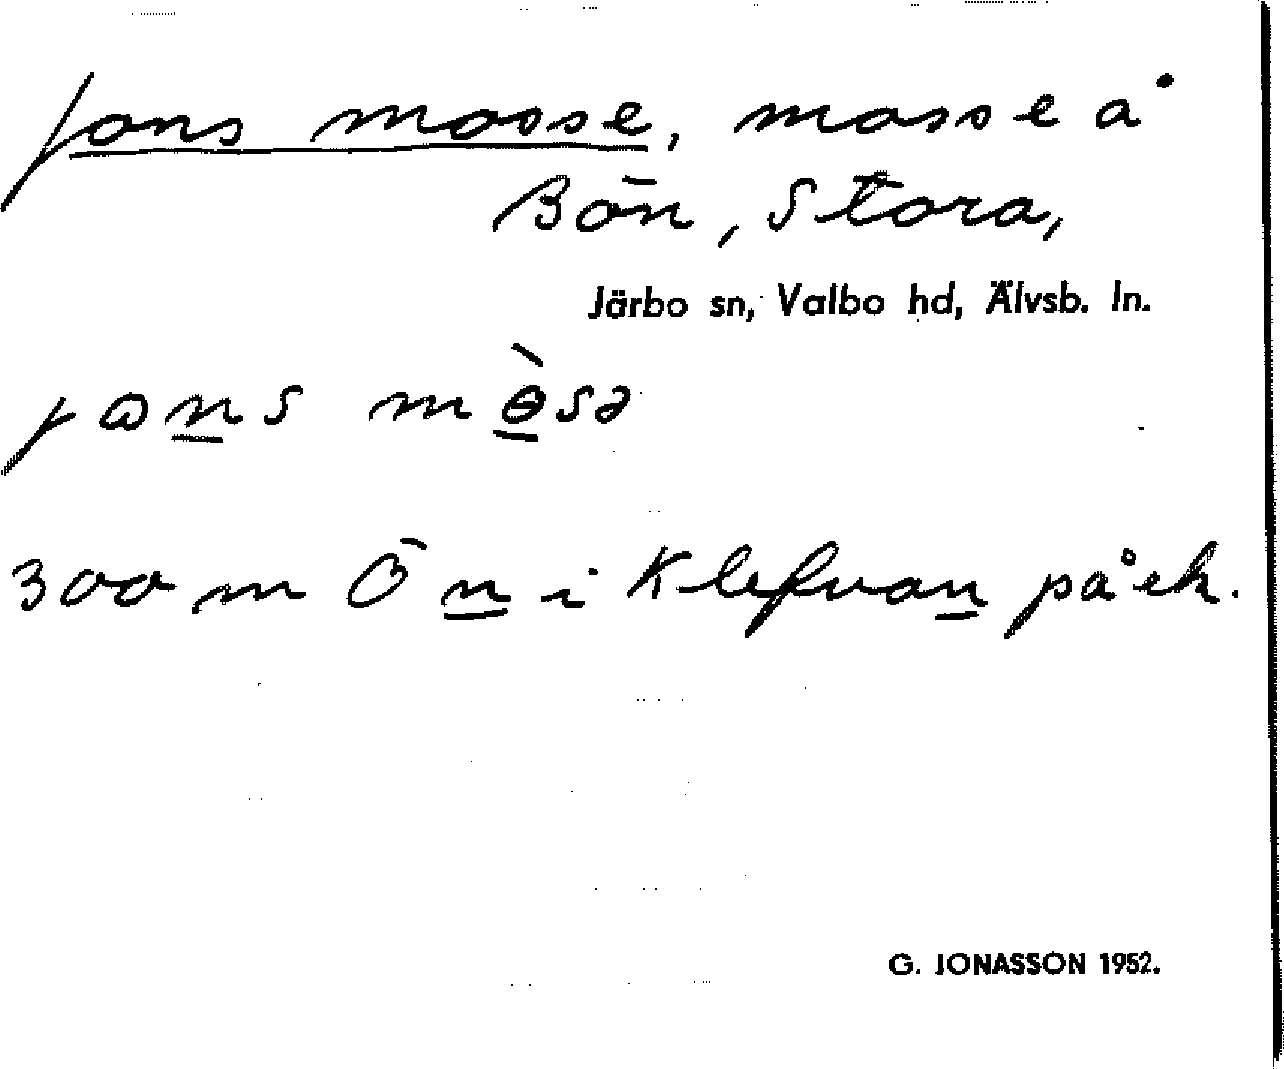 Jons mosse, mosse å
Bön, Stora,
Järbo sn, Valbo hd, Älvsb. ln.
jɷns mɵ̀sə
300 m Ö n i Klefvan på ek.
G. JONASSON 1952.